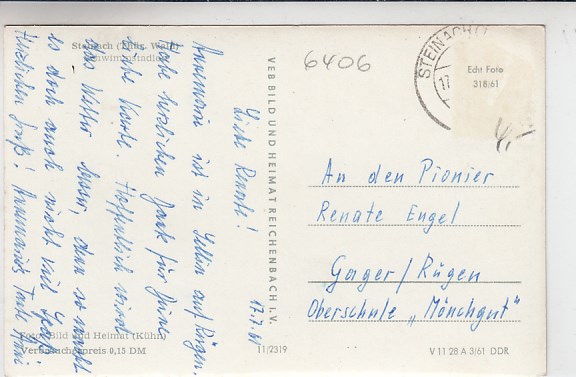 Steinach (Thür. Wald)
Schwimmstadion
17.7.61
Liebe Renate!
Annemarie ist in Sellin auf Rügen.
Habe herzlichen Dank für Deine
liebe Karte. Hoffentlich wird
das Wetter besser, denn so macht
es doch auch nicht viel Spaß.
Herzlichen Gruß! Annemaries Tante
Foto: Bild und Heimat (Kühn)
Verbraucherpreis 0,15 DM
VEB BILD UND HEIMAT REICHENBACH I.V.
11/2319
6406
STEINACH
17
Echt Foto
318/61
4,-
An den Pionier
Renate Engel
Gager/Rügen
Oberschule „Mönchgut"
V 11 28 A 3/61 DDR